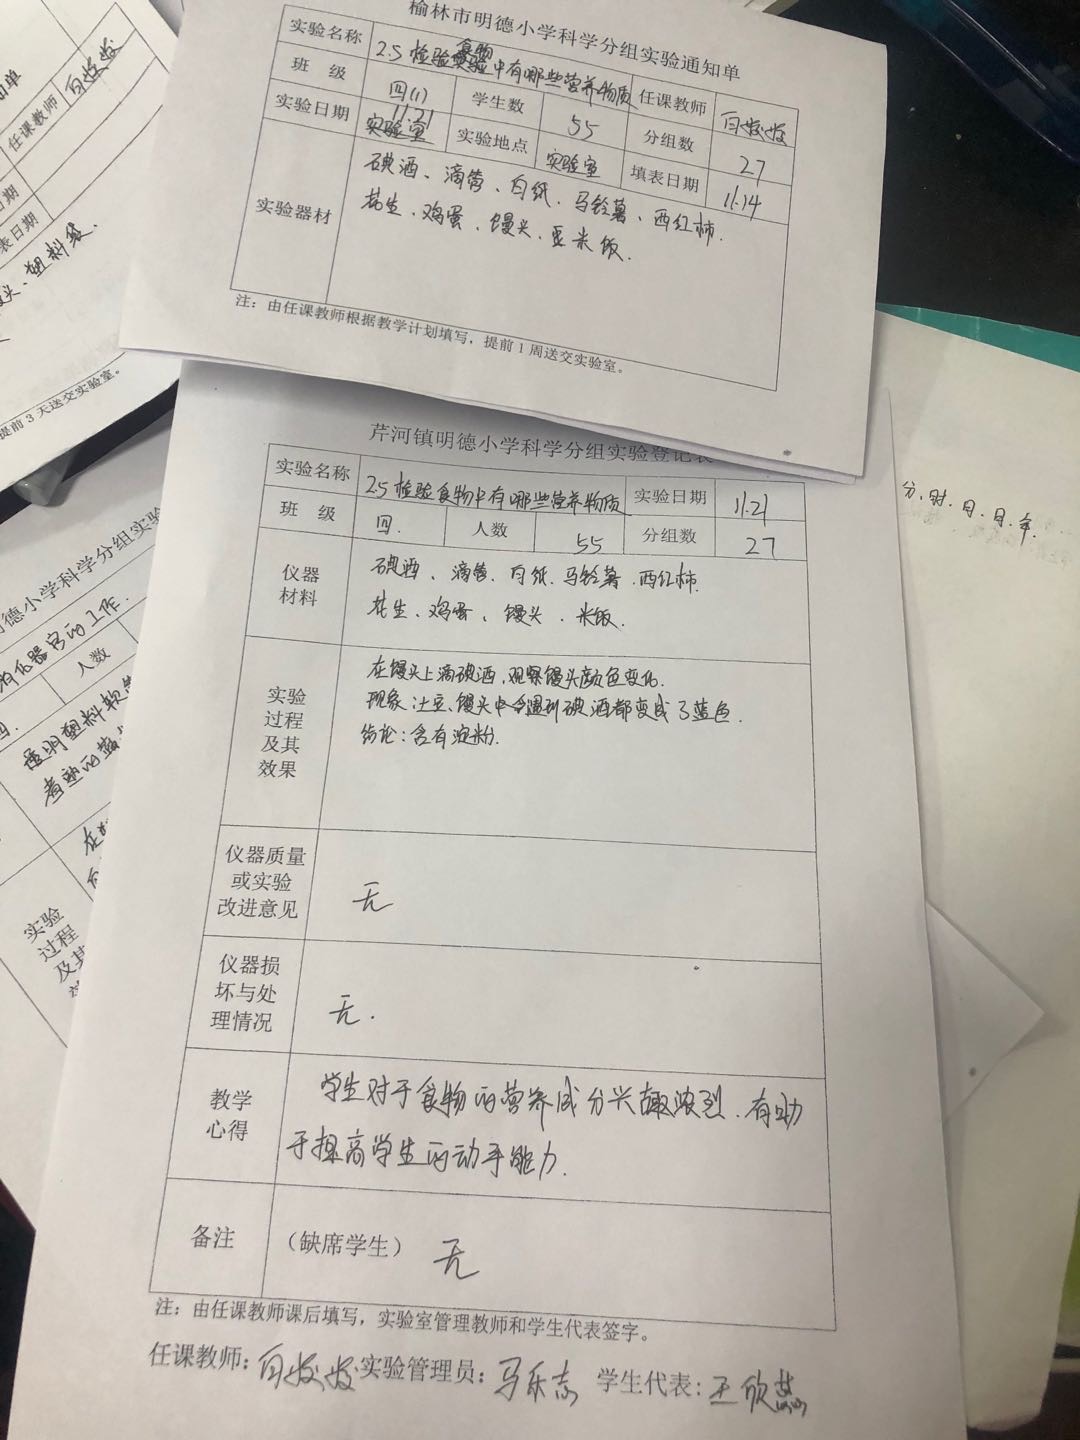 榆林市明德小学科学分组实验通知单
实验名称 2.5检验食物中有哪些营养物质 任课教师
班 级 四(1) 学生数 55 分组数 27
实验日期 11.21 实验室 实验地点 实验室 填表日期 11.14
实验器材 碘酒、滴管、白纸、马铃薯、西红柿.
花生、鸡蛋、馒头、米饭.
注：由任课教师根据教学计划填写，提前1周送交实验室。
芹河镇明德小学科学分组实验登记表
实验名称 2.5检验食物中有哪些营养物质 实验日期 11.21
班 级 四. 人数 55 分组数 27
仪器
材料
碘酒、滴管、白纸.马铃薯.西红柿.
花生、鸡蛋、馒头、米饭.
实验
过程
及其
效果
在馒头上滴碘酒,观察馒头颜色变化.
现象:土豆、馒头中遇到碘酒都变成了蓝色.
结论:含有淀粉.
仪器质量
或实验
改进意见
无
仪器损
坏与处
理情况
无.
教学
心得
学生对于食物的营养成分兴趣浓烈.有助
于提高学生的动手能力.
备注 （缺席学生） 无
注：由任课教师课后填写，实验室管理教师和学生代表签字。
任课教师: 实验管理员: 马乐志 学生代表: 王欣蕊
单
任课教师
表日期
头、塑料袋.
提前3天送交实验室。
德小学科学分组实验
消化器官的工作.
四. 人数
透明塑料软管
煮熟的
实验
过程
及其
分.时.日.月.年.